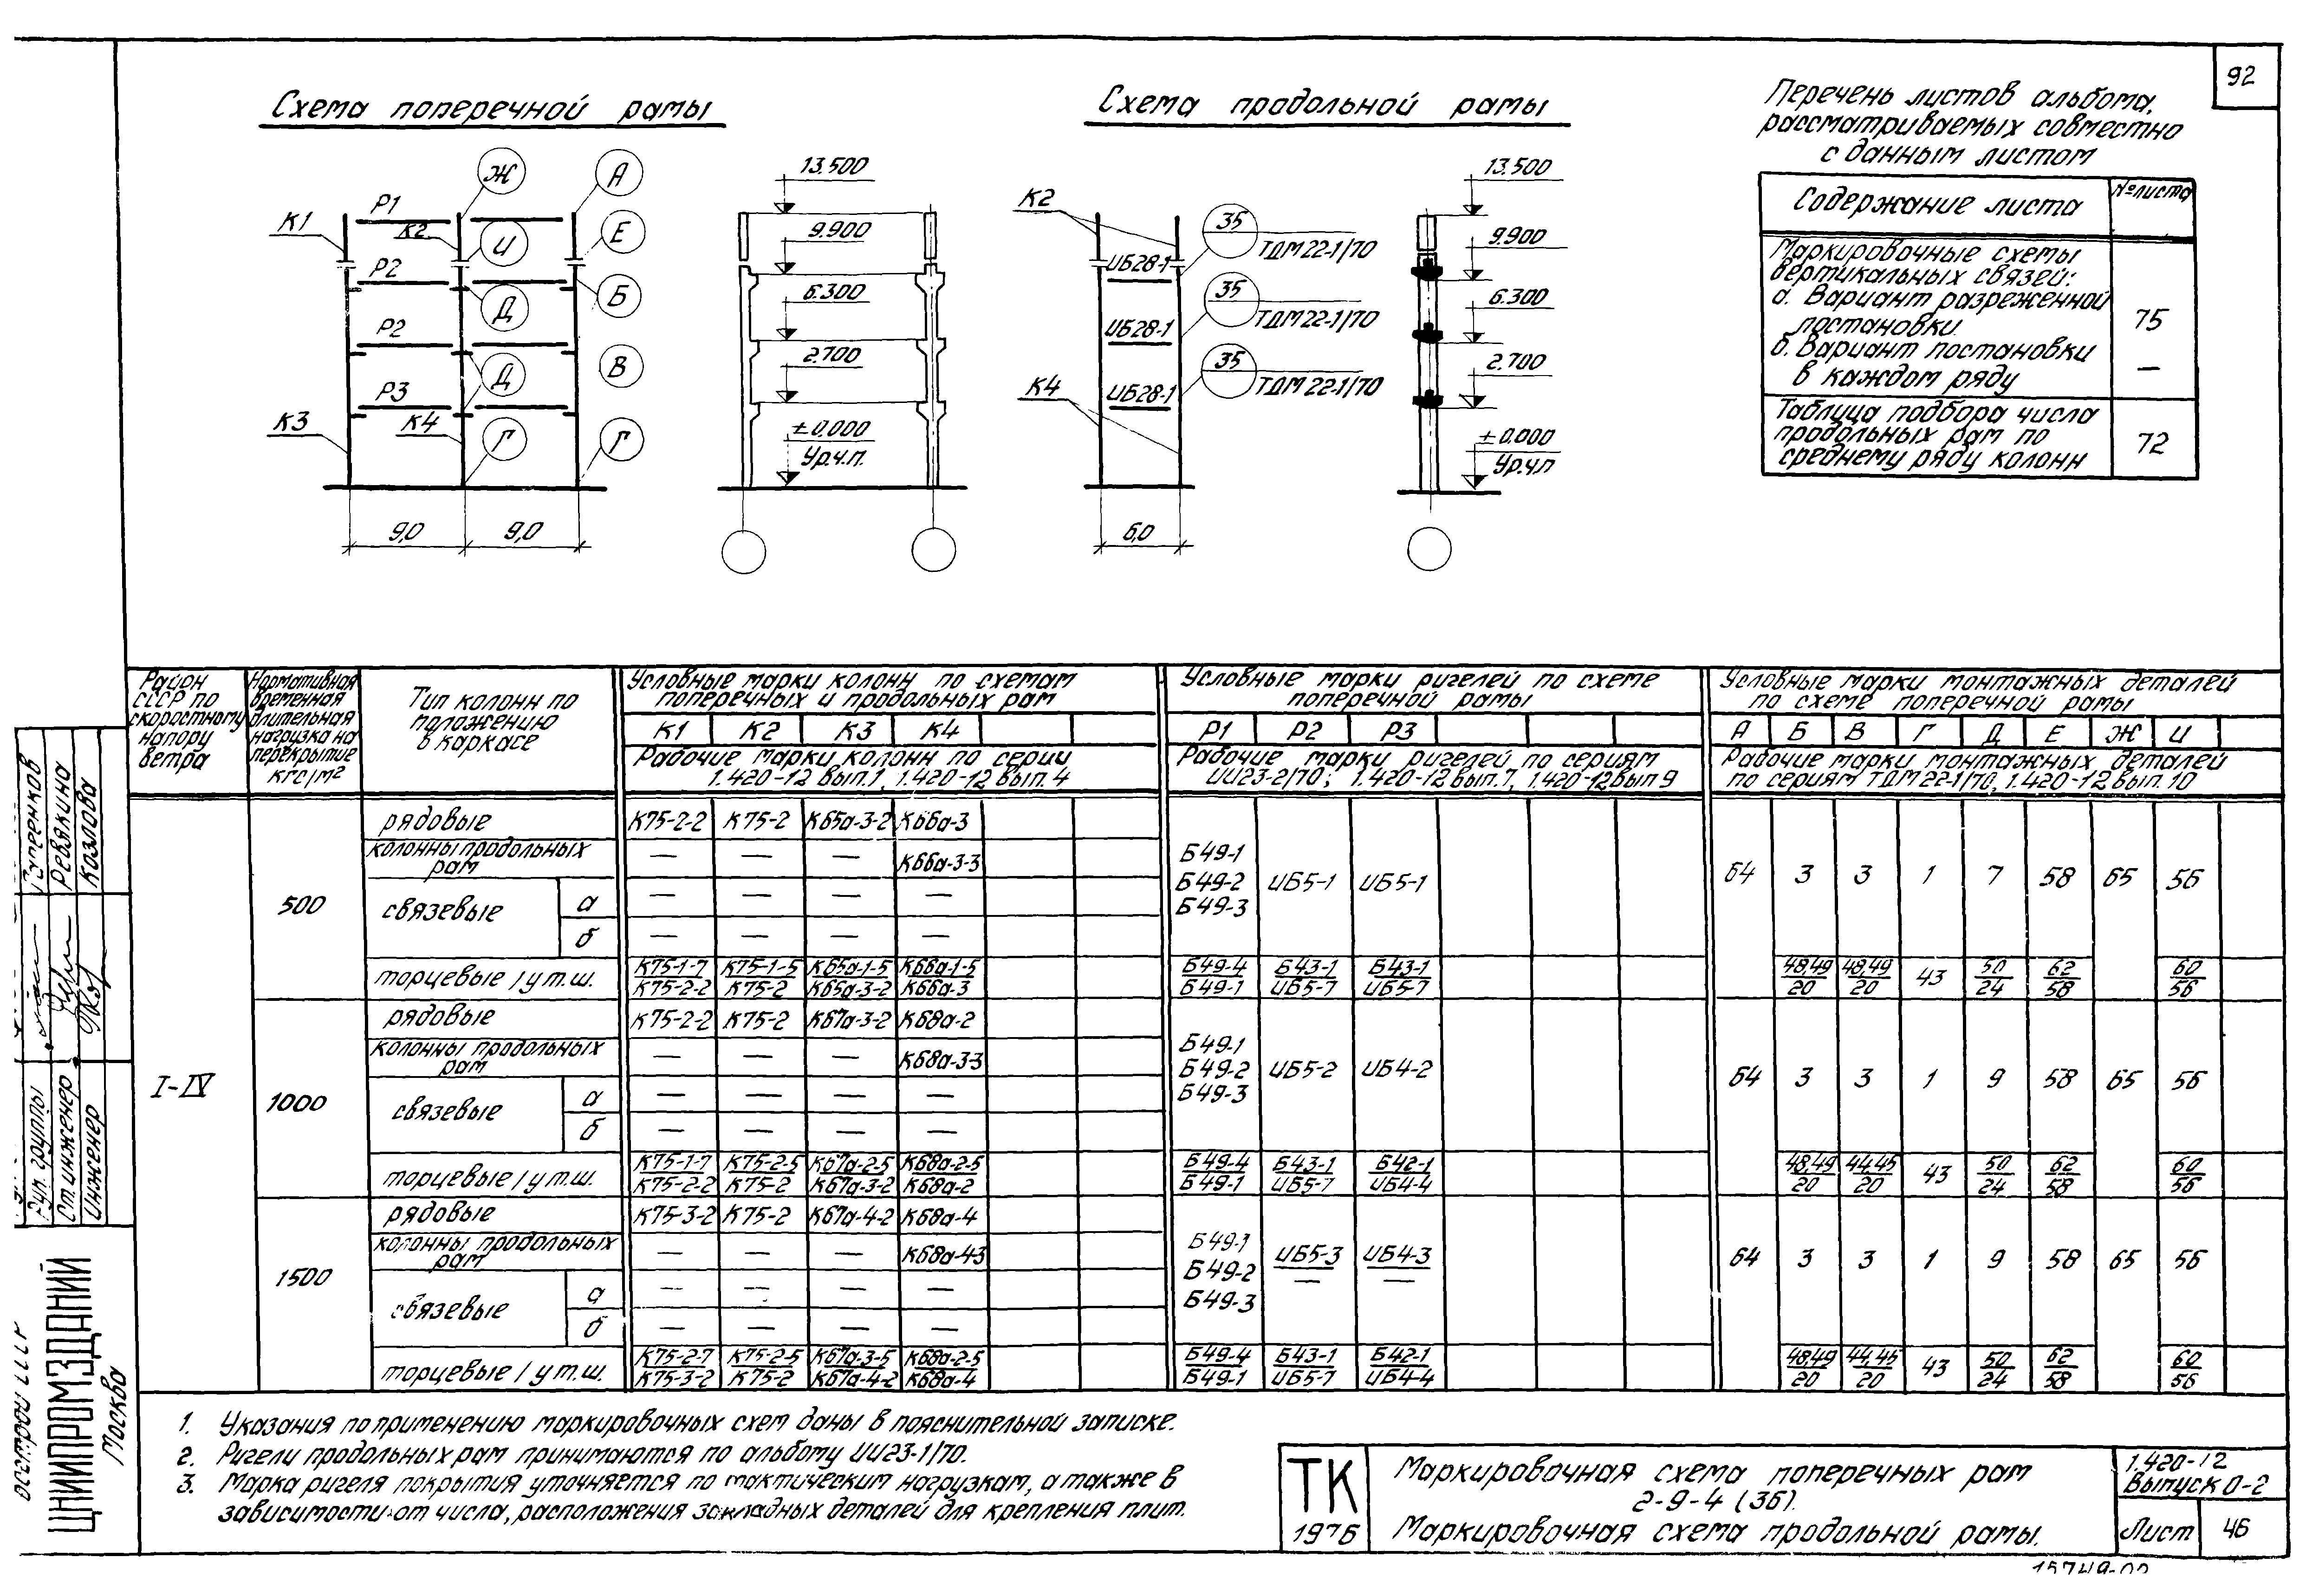 92
Схема поперечной рамы
Схема продольной рамы
Перечень листов альбома,
рассматриваемых совместно
с данным листом
Содержание листа
№ листа
Маркировочные схемы
вертикальных связей:
а. Вариант разреженной
постановки.
75
б. Вариант постановки
в каждом ряду
—
Таблица подбора числа
продольных рам по
среднему ряду колонн
72
К1 Р1 К2 Ж А
И Е
Р2 Д Б
Р2 Д В
К3 Р3 К4 Г Г
9,0 9,0
13.500
9.900
6.300
2.700
±0.000
Ур.ч.п.
К2 35 ТДМ 22-1/70
ИБ28-1
35 ТДМ 22-1/70
ИБ28-1
К4 35 ТДМ 22-1/70
ИБ28-1
6,0
13.500
9.900
6.300
2.700
±0.000
Ур.ч.п
Район СССР по скоростному напору ветра
Нормативная временная длительная нагрузка на перекрытие кгс/м²
Тип колонн по положению в каркасе
Условные марки колонн по схемам
поперечных и продольных рам
К1 К2 К3 К4
Рабочие марки колонн по серии
1.420-12 вып.1, 1.420-12 вып. 4
Условные марки ригелей по схеме
поперечной рамы
Р1 Р2 Р3
Рабочие марки ригелей по сериям
ИИ23-2/70; 1.420-12 вып. 7, 1.420-12 вып 9
Условные марки монтажных деталей
по схеме поперечной рамы
А Б В Г Д Е Ж И
Рабочие марки монтажных деталей
по сериям ТДМ 22-1/70, 1.420-12 вып. 10
I-IV
500
рядовые К75-2-2 К75-2 К65а-3-2 К66а-3
колонны продольных рам — — — К66а-3-3
связевые а — — — —
б — — — —
Б49-1 Б49-2 Б49-3 ИБ5-1 ИБ5-1
64 3 3 1 7 58 65 56
торцевые / у т.ш. К75-1-7/К75-2-2 К75-1-5/К75-2 К65а-1-5/К65а-3-2 К66а-1-5/К66а-3
Б49-4/Б49-1 Б43-1/ИБ5-7 Б43-1/ИБ5-7
48,49/20 48,49/20 43 50/24 62/58 60/56
1000
рядовые К75-2-2 К75-2 К67а-3-2 К68а-2
колонны продольных рам — — — К68а-3-3
связевые а — — — —
б — — — —
Б49-1 Б49-2 Б49-3 ИБ5-2 ИБ4-2
64 3 3 1 9 58 65 56
торцевые / у т.ш. К75-1-7/К75-2-2 К75-2-5/К75-2 К67а-2-5/К67а-3-2 К68а-2-5/К68а-2
Б49-4/Б49-1 Б43-1/ИБ5-7 Б42-1/ИБ4-4
48,49/20 44,45/20 43 50/24 62/58 60/56
1500
рядовые К75-3-2 К75-2 К67а-4-2 К68а-4
колонны продольных рам — — — К68а-43
связевые а — — — —
б — — — —
Б49-1 Б49-2 Б49-3 ИБ5-3/— ИБ4-3/—
64 3 3 1 9 58 65 56
торцевые / у т.ш. К75-2-7/К75-3-2 К75-2-5/К75-2 К67а-3-5/К67а-4-2 К68а-2-5/К68а-4
Б49-4/Б49-1 Б43-1/ИБ5-7 Б42-1/ИБ4-4
48,49/20 44,45/20 43 50/24 62/58 60/56
1. Указания по применению маркировочных схем даны в пояснительной записке.
2. Ригели продольных рам принимаются по альбому ИИ23-1/70.
3. Марка ригеля покрытия уточняется по фактическим нагрузкам, а также в
зависимости от числа, расположения закладных деталей для крепления плит.
ТК
1976
Маркировочная схема поперечных рам
2-9-4 (36).
Маркировочная схема продольной рамы.
1.420-12
Выпуск 0-2
Лист 46
Ревякина
Козлова
Рук. группы
Ст. инженер
Инженер
ЦНИИПРОМЗДАНИЙ
Москва